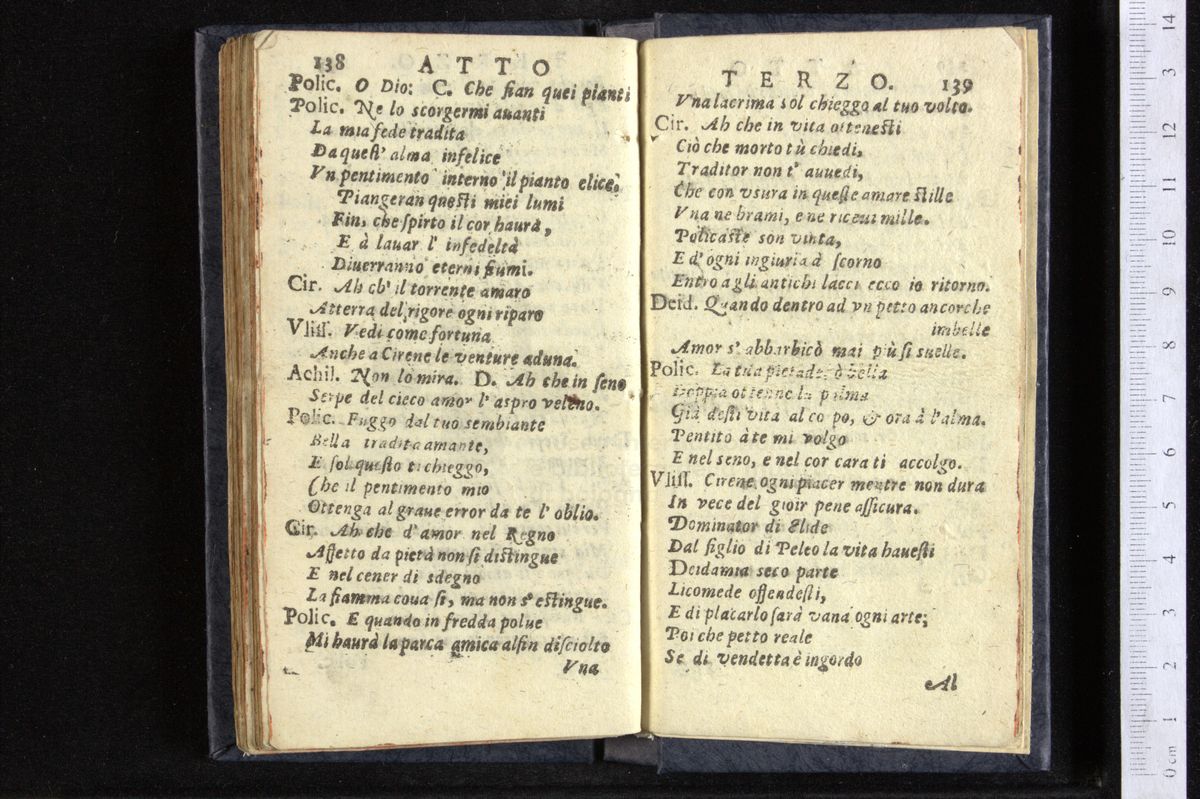 138 ATTO
Polic. O Dio: C. Che fian quei pianti
Polic. Ne lo scorgermi auanti
La mia fede tradita
Da quest' alma infelice
Vn pentimento interno il pianto elice.
Piangeran questi miei lumi
Fin, che spirto il cor haurà,
E à lauar l' infedeltà
Diuerranno eterni fiumi.
Cir. Ah ch' il torrente amaro
Atterra del rigore ogni riparo
Vliss. Vedi come fortuna
Anche a Cirene le venture aduna.
Achil. Non lo mira. D. Ah che in seno
Serpe del cieco amor l' aspro veleno.
Polic. Fuggo dal tuo sembiante
Bella tradita amante,
E sol questo ti chieggo,
Che il pentimento mio
Ottenga al graue error da te l' oblio.
Cir. Ah che d' amor nel Regno
Affetto da pietà non si distingue
E nel cener di sdegno
La fiamma coua si, ma non s' estingue.
Polic. E quando in fredda polue
Mi haurà la parca amica alfin disciolto
Vna
TERZO. 139
Vna lacrima sol chieggo al tuo volto.
Cir. Ah che in vita ottenesti
Ciò che morto tù chiedi,
Traditor non t' auuedi,
Che con vsura in queste amare stille
Vna ne brami, e ne riceui mille.
Policaste son vinta,
E d' ogni ingiuria à scorno
Entro agli antichi lacci ecco io ritorno.
Deid. Quando dentro ad vn petto ancorche
imbelle
Amor s' abbarbicò mai più si suelle.
Polic. La tua pietade, ò bella
Doppia ottenne la palma
Già desti vita al co po, & ora à l'alma.
Pentito à te mi volgo
E nel seno, e nel cor cara ti accolgo.
Vliss. Cirene ogni piacer mentre non dura
In vece del gioir pene assicura.
Dominator di Elide
Dal figlio di Peleo la vita hauesti
Deidamia seco parte
Licomede offendesti,
E di placarlo sarà vana ogni arte;
Poi che petto reale
Se di vendetta è ingordo
Al
0 cm 1 2 3 4 5 6 7 8 9 10 11 12 3 14